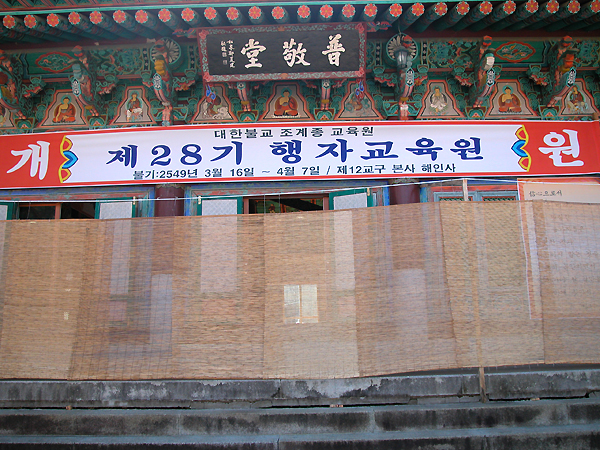 普敬堂
대한불교 조계종 교육원
개 제28기 행자교육원 원
불기:2549년 3월 16일 ~ 4월 7일 / 제12교구 본사 해인사